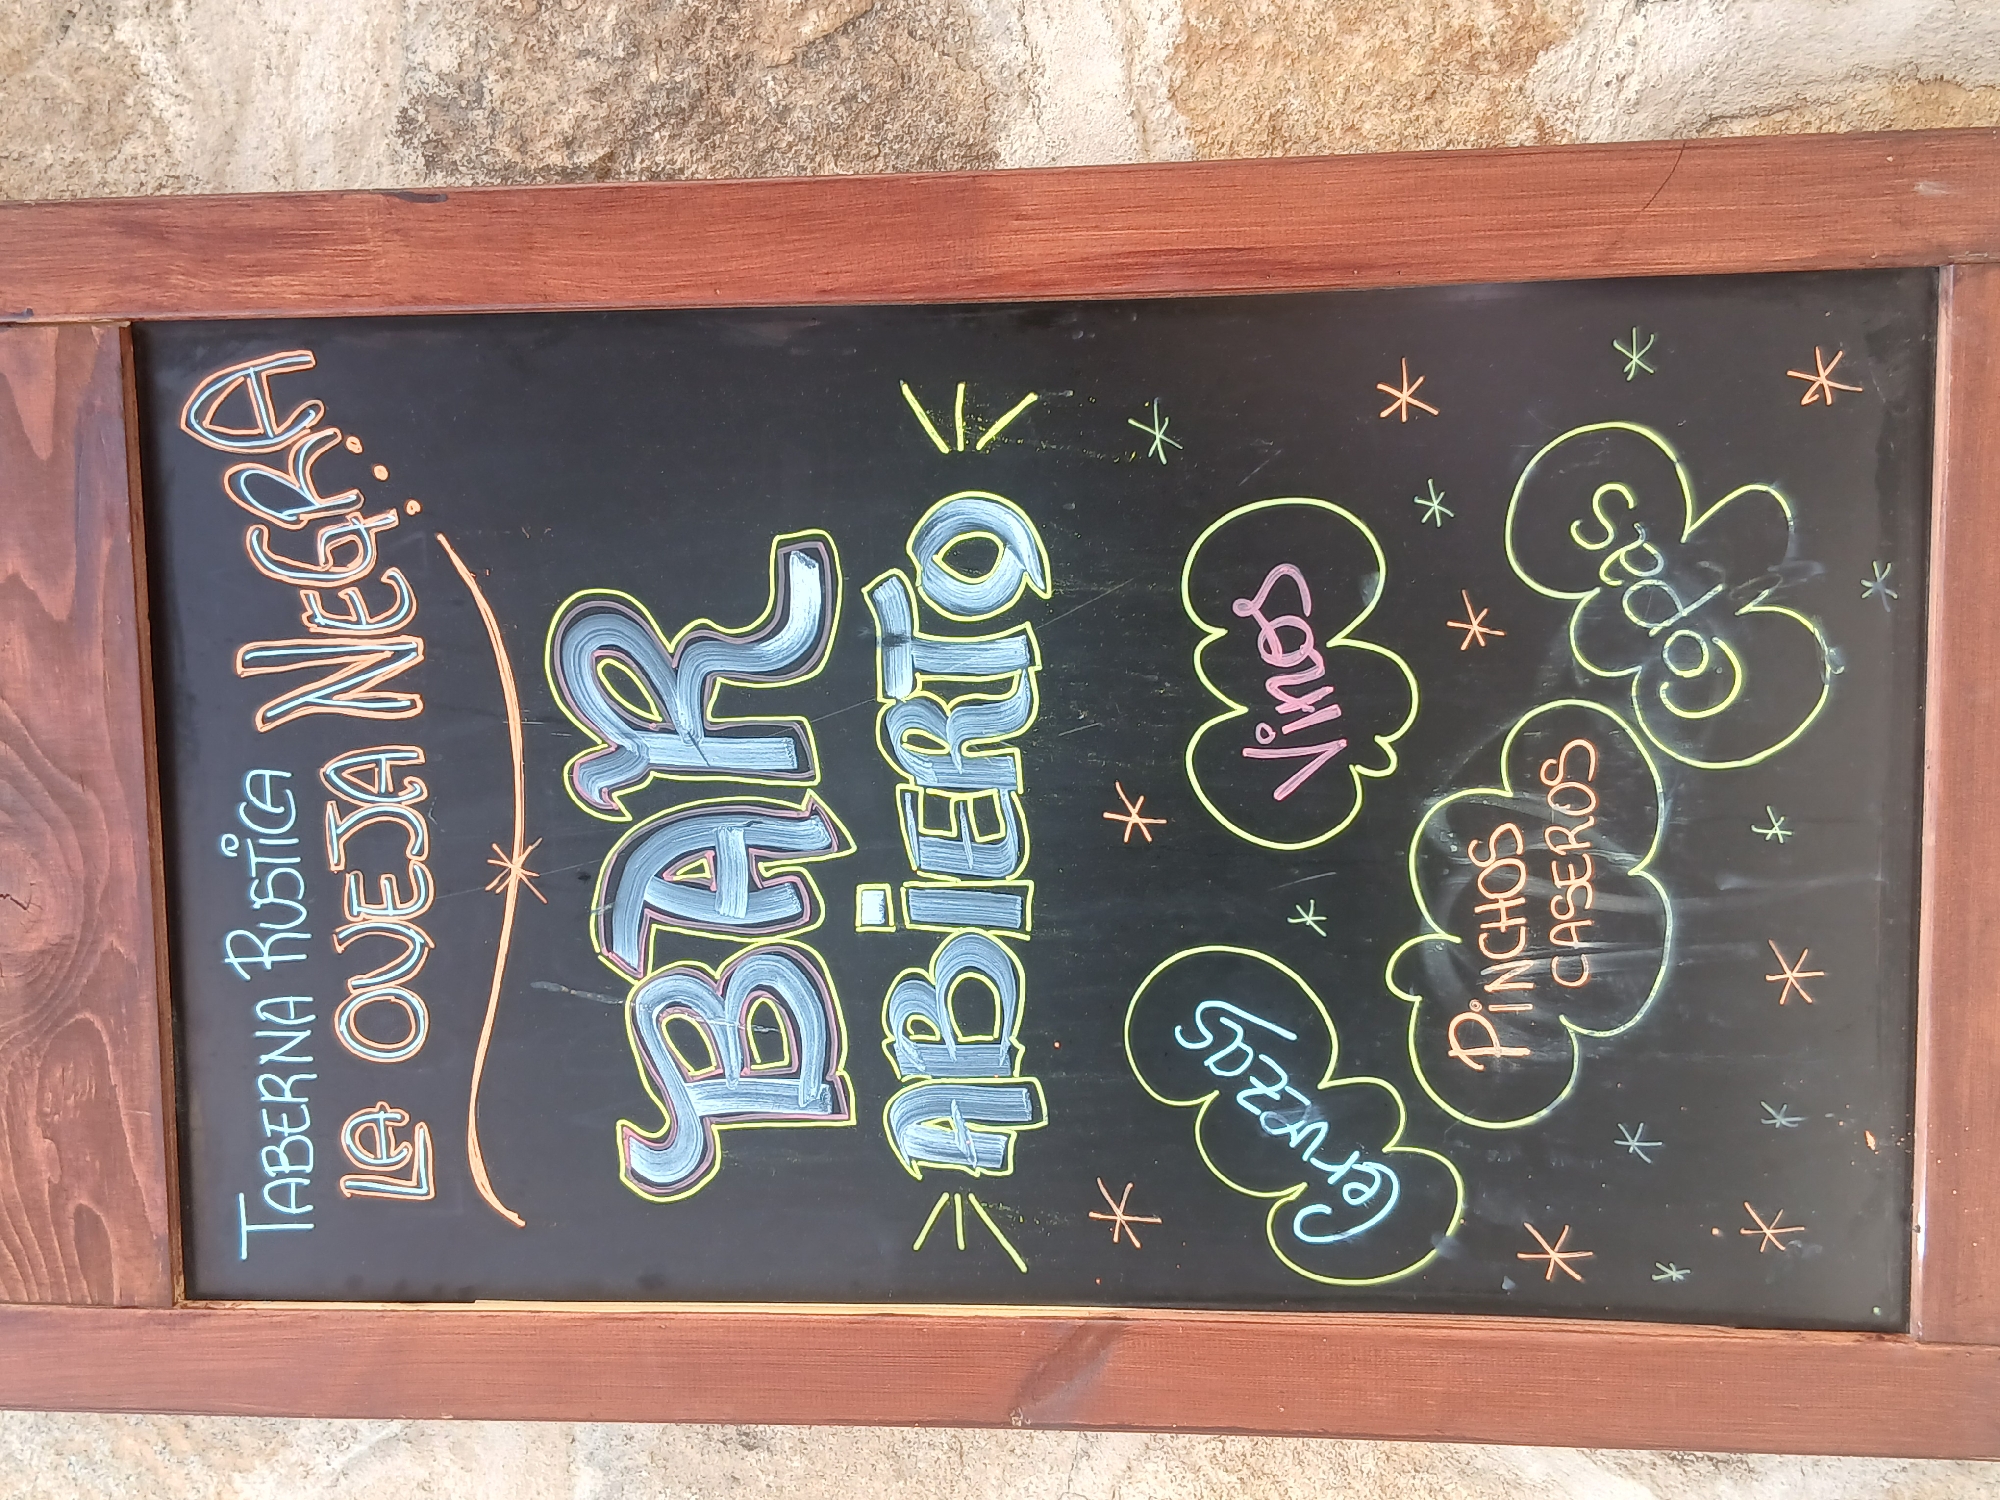 TABERNA RUSTICA
LA OVEJA NEGRA...
BAR
ABIERTO
Cervezas
Vinos
PINCHOS
CASEROS
Copas